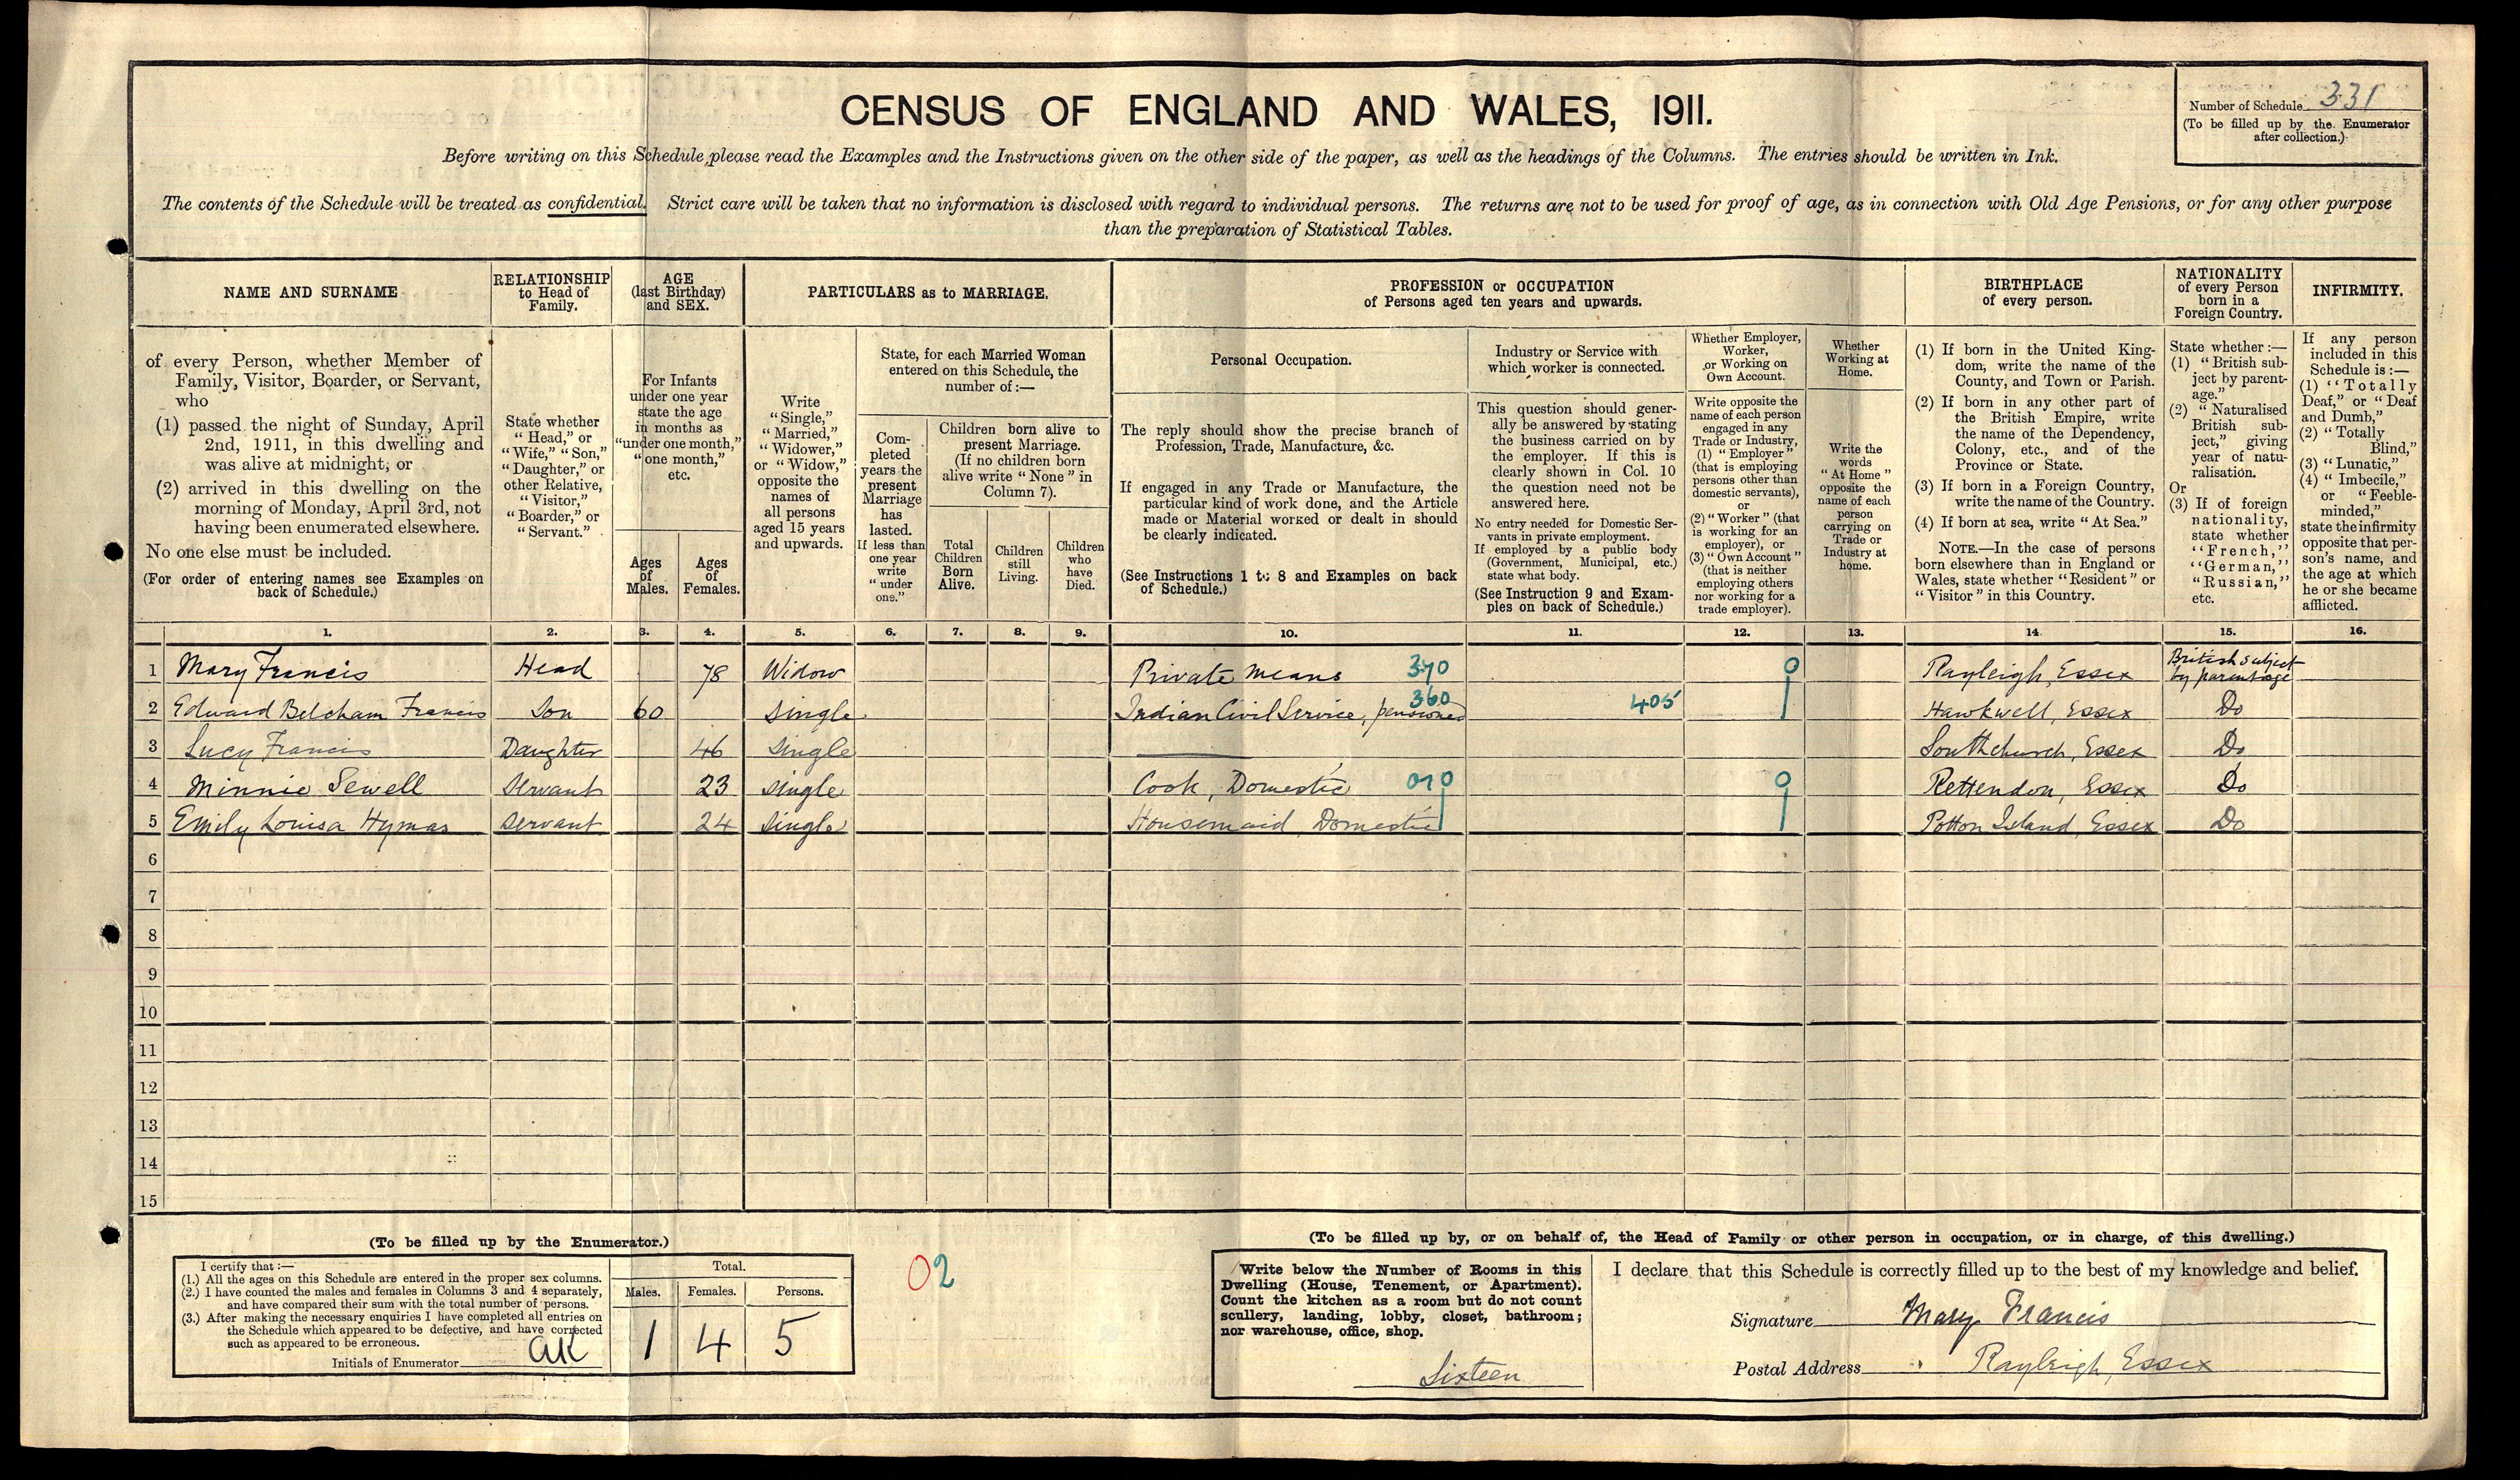 CENSUS OF ENGLAND AND WALES, 1911.
Number of Schedule 331
(To be filled up by the Enumerator
after collection.)
Before writing on this Schedule please read the Examples and the Instructions given on the other side of the paper, as well as the headings of the Columns. The entries should be written in Ink.
The contents of the Schedule will be treated as confidential. Strict care will be taken that no information is disclosed with regard to individual persons. The returns are not to be used for proof of age, as in connection with Old Age Pensions, or for any other purpose
than the preparation of Statistical Tables.
NAME AND SURNAME
of every Person, whether Member of
Family, Visitor, Boarder, or Servant,
who
(1) passed the night of Sunday, April
2nd, 1911, in this dwelling and
was alive at midnight; or
(2) arrived in this dwelling on the
morning of Monday, April 3rd, not
having been enumerated elsewhere.
No one else must be included.
(For order of entering names see Examples on
back of Schedule.)
RELATIONSHIP
to Head of
Family.
State whether
"Head," or
"Wife," "Son,"
"Daughter," or
other Relative,
"Visitor,"
"Boarder," or
"Servant."
AGE
(last Birthday)
and SEX.
For Infants
under one year
state the age
in months as
"under one month,"
"one month,"
etc.
Ages
of
Males.
Ages
of
Females.
PARTICULARS as to MARRIAGE.
Write
"Single,"
"Married,"
"Widower,"
or "Widow,"
opposite the
names of
all persons
aged 15 years
and upwards.
State, for each Married Woman
entered on this Schedule, the
number of:—
Com-
pleted
years the
present
Marriage
has
lasted.
If less than
one year
write
"under
one."
Children born alive to
present Marriage.
(If no children born
alive write "None" in
Column 7).
Total
Children
Born
Alive.
Children
still
Living.
Children
who
have
Died.
PROFESSION or OCCUPATION
of Persons aged ten years and upwards.
Personal Occupation.
The reply should show the precise branch of
Profession, Trade, Manufacture, &c.
If engaged in any Trade or Manufacture, the
particular kind of work done, and the Article
made or Material worked or dealt in should
be clearly indicated.
(See Instructions 1 to 8 and Examples on back
of Schedule.)
Industry or Service with
which worker is connected.
This question should gener-
ally be answered by stating
the business carried on by
the employer. If this is
clearly shown in Col. 10
the question need not be
answered here.
No entry needed for Domestic Ser-
vants in private employment.
If employed by a public body
(Government, Municipal, etc.)
state what body.
(See Instruction 9 and Exam-
ples on back of Schedule.)
Whether Employer,
Worker,
or Working on
Own Account.
Write opposite the
name of each person
engaged in any
Trade or Industry,
(1) "Employer"
(that is employing
persons other than
domestic servants),
or
(2) "Worker" (that
is working for an
employer), or
(3) "Own Account"
(that is neither
employing others
nor working for a
trade employer).
Whether
Working at
Home.
Write the
words
"At Home"
opposite the
name of each
person
carrying on
Trade or
Industry at
home.
BIRTHPLACE
of every person.
(1) If born in the United King-
dom, write the name of the
County, and Town or Parish.
(2) If born in any other part of
the British Empire, write
the name of the Dependency,
Colony, etc., and of the
Province or State.
(3) If born in a Foreign Country,
write the name of the Country.
(4) If born at sea, write "At Sea."
NOTE.—In the case of persons
born elsewhere than in England or
Wales, state whether "Resident" or
"Visitor" in this Country.
NATIONALITY
of every Person
born in a
Foreign Country.
State whether:—
(1) "British sub-
ject by parent-
age."
(2) "Naturalised
British sub-
ject," giving
year of natu-
ralisation.
Or
(3) If of foreign
nationality,
state whether
"French,"
"German,"
"Russian,"
etc.
INFIRMITY.
If any person
included in this
Schedule is:—
(1) "Totally
Deaf," or "Deaf
and Dumb,"
(2) "Totally
Blind,"
(3) "Lunatic,"
(4) "Imbecile,"
or "Feeble-
minded,"
state the infirmity
opposite that per-
son's name, and
the age at which
he or she became
afflicted.
1. 2. 3. 4. 5. 6. 7. 8. 9. 10. 11. 12. 13. 14. 15. 16.
1 Mary Francis Head 78 Widow Private means 370 0 Rayleigh, Essex British subject by parentage
2 Edward Belcham Francis Son 60 Single Indian Civil Service, pensioned 360 405 Hawkwell, Essex Do
3 Lucy Francis Daughter 46 Single Southchurch, Essex Do
4 Minnie Sewell Servant 23 Single Cook, Domestic 070 0 Rettendon, Essex Do
5 Emily Louisa Hymas Servant 24 Single Housemaid, Domestic Potton Island, Essex Do
6
7
8
9
10
11
12
13
14
15
(To be filled up by the Enumerator.)
I certify that:—
(1.) All the ages on this Schedule are entered in the proper sex columns.
(2.) I have counted the males and females in Columns 3 and 4 separately,
and have compared their sum with the total number of persons.
(3.) After making the necessary enquiries I have completed all entries on
the Schedule which appeared to be defective, and have corrected
such as appeared to be erroneous.
Initials of Enumerator GK
Total.
Males. Females. Persons.
1 4 5
02
(To be filled up by, or on behalf of, the Head of Family or other person in occupation, or in charge, of this dwelling.)
Write below the Number of Rooms in this
Dwelling (House, Tenement, or Apartment).
Count the kitchen as a room but do not count
scullery, landing, lobby, closet, bathroom;
nor warehouse, office, shop.
Sixteen
I declare that this Schedule is correctly filled up to the best of my knowledge and belief.
Signature Mary Francis
Postal Address Rayleigh, Essex